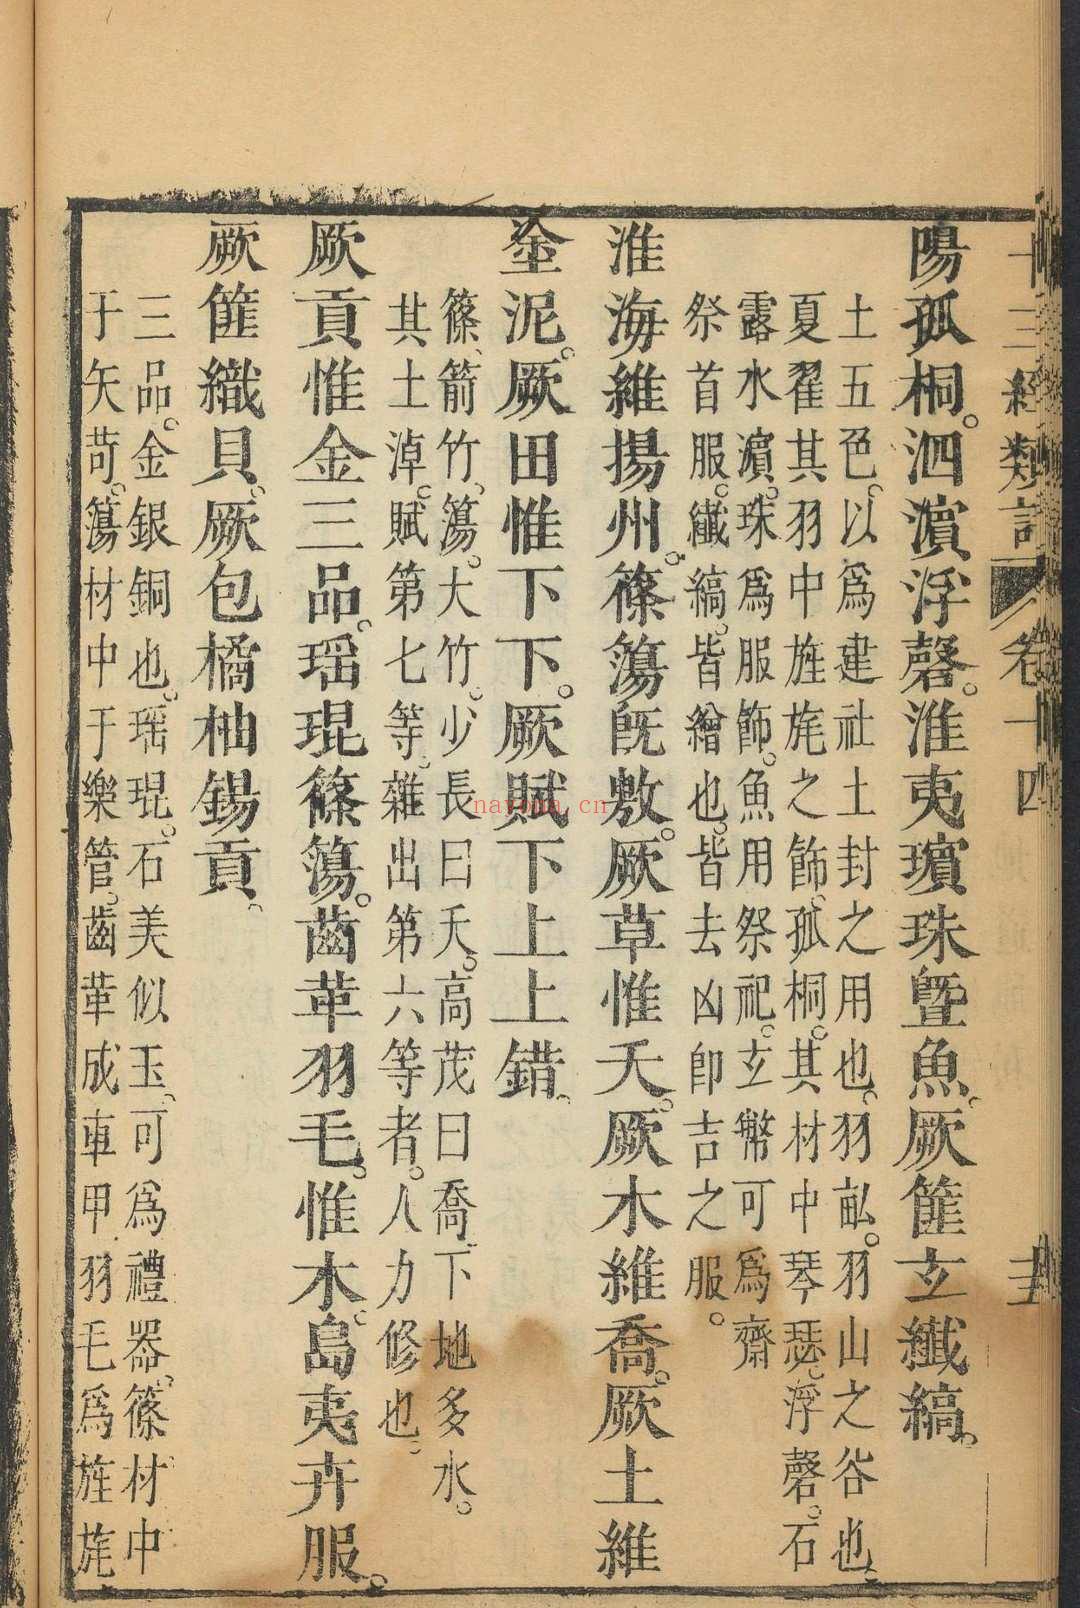 十三經類記 卷十四 主
陽孤桐。泗濵浮磬。淮夷蠙珠曁魚。厥篚玄纖縞。
土五色。以爲建社土封之用也。羽畎。羽山之谷也。
夏翟其羽中旌旄之飾。孤桐。其材中琴瑟。浮磬。石
露水濵。珠爲服飾。魚用祭祀。玄幣可爲齋
祭首服。纖縞。皆繒也。皆去凶卽吉之服。
淮海維揚州。篠簜旣敷。厥草惟夭。厥木維喬。厥土維
塗泥。厥田惟下下。厥賦下上上錯。
篠、箭竹。簜。大竹。少長曰夭。高茂曰喬。下地多水。
其土淖。賦第七等。雜出第六等者。人力修也。
厥貢惟金三品。瑶琨篠簜。齒革羽毛。惟木。島夷卉服。
厥篚織貝。厥包橘柚錫貢。
三品。金銀銅也。瑶琨。石美似玉。可爲禮器。篠材中
于矢苛。簜材中于樂管。齒革成車甲羽毛爲旌旄
nayona.cn